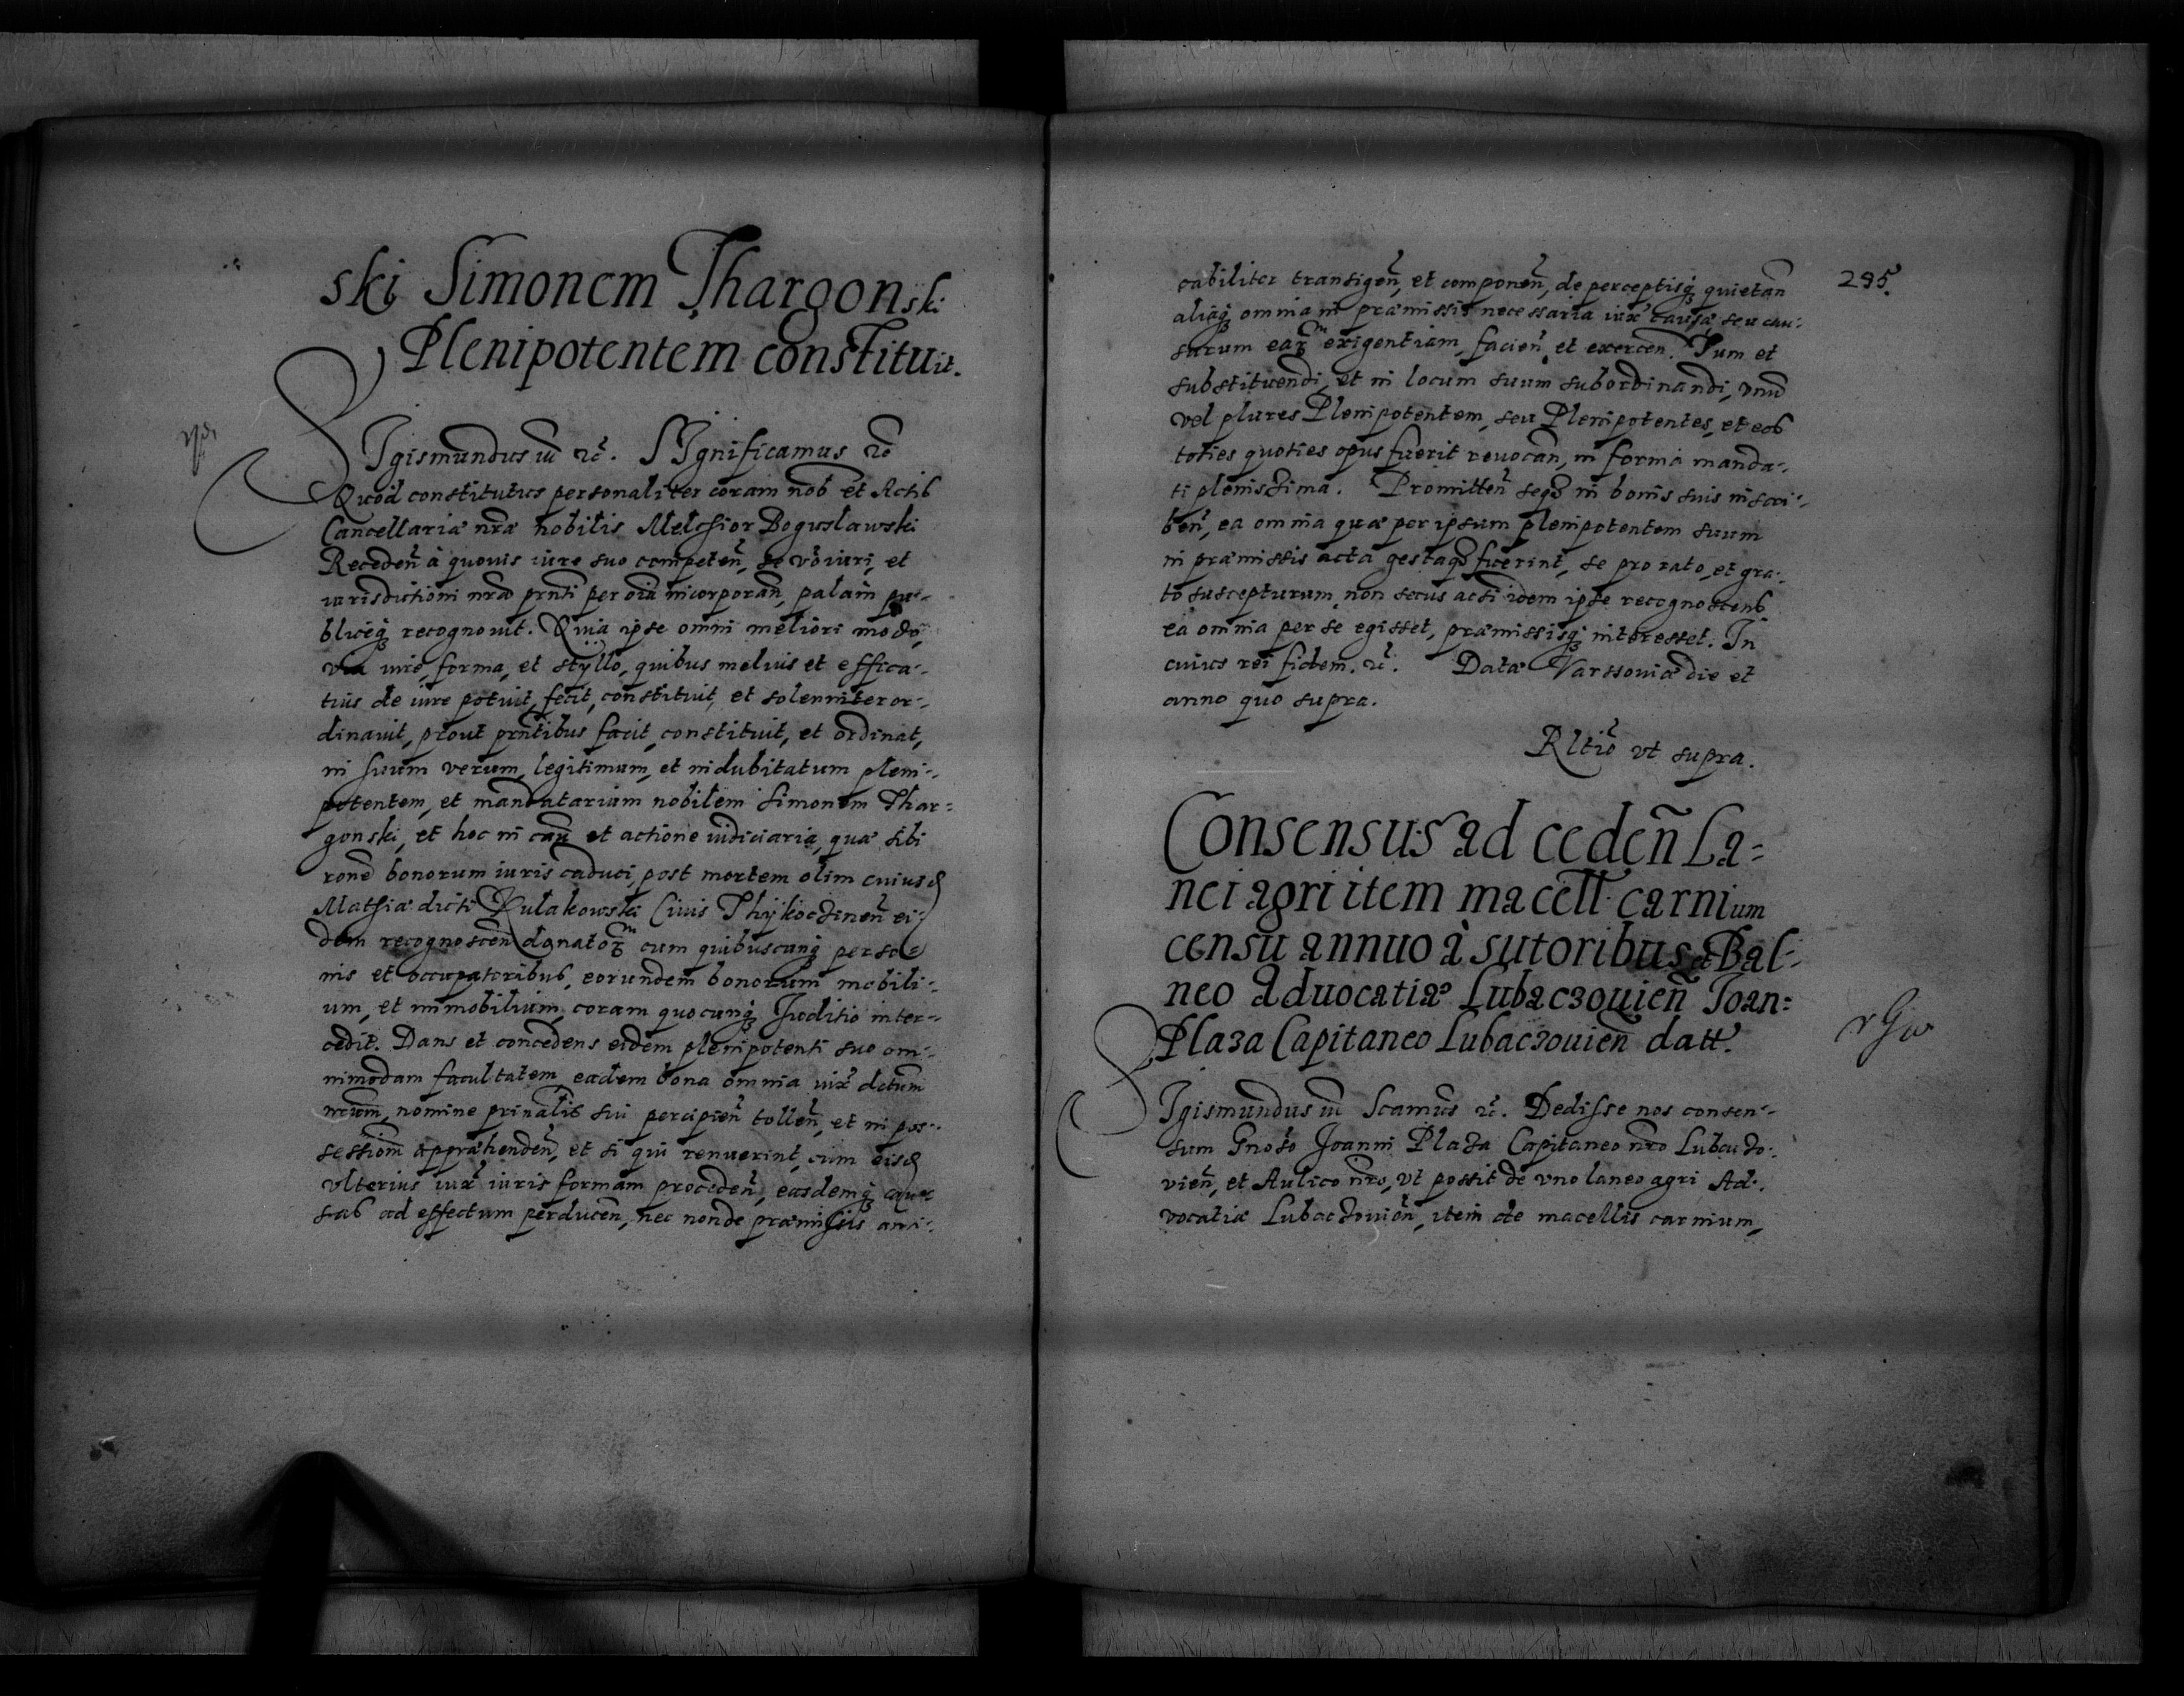 ski Simonem Thargonski
Plenipotentem constituit.
Igismundus iii ꝛc̃. SIgnificamus ꝛc̃
Quod constitutus personaliter coram nob et Actis
Cancellariæ nr̃æ nobilis Melchior Boguslawski
Recedeñ à quovis iure suo competeñ, se võ iuri, et
iurisdictioni nr̃æ pr̃nti per oĩa incorporañ, palam pu-
bliceq; recognovit. Quia ipse omni meliori modo,
via iure, forma, et styllo, quibus melius et effica-
tius de iure potuit, fecit, constituit, et solenniter or-
dinavit, prout pr̃ntibus facit, constituit, et ordinat,
in suum verum, legitimum, et indubitatum pleni-
potentem, et mandatarium nobilem Simonem Thar-
gonski, et hoc in cau et actione iudiciaria, quæ sibi
ronẽ bonorum iuris caduci, post mortem olim cuiusd
Mathiæ dicti Kulakowski Civis Thykocineñ ei-
dem recognosceñ donatoꝝ cum quibuscunq; perso-
nis et occupatoribus, eorundem bonorum mobili-
um, et immobilium, coram quocunq; Iuditio inter-
cedit. Dans et concedens eidem plenipotenti suo om-
nimodam facultatem, eadem bona omnia iux̃ dictum
nomine prinalis sui percipieñ tolleñ, et in pos-
sessiom̃ appræhendeñ, et si qui renuerint, cum eisd
vlterius iux̃ iuris formam procedeñ, easdemq; cau-
sas ad effectum perduceñ, nec non de præmissis ami-
295.
cabiliter transigeñ, et componeñ, de perceptisq; quietañ
aliaq; omnia in præmissis necessaria iux̃ causæ seu cau-
sarum eaꝝ exigentiam, facieñ et exerceñ. Tum et
substituendi, et in locum suum subordinandi, vnũ
vel plures Plenipotentem, seu Plenipotentes, et eos
toties quoties opus fuerit revocañ, in forma manda-
ti plenissima. Promitteñ seqȝ in bonis suis inscri-
beñ, ea omnia quæ per ipsum plenipotentem suum
in præmissis acta gestaqȝ fuerint, se pro rato, et gra-
to suscepturum, non secus acsi idem ipse recognoscens
ea omnia per se egisset, præmissisq; interesset. In
cuius rei fidem. ꝛc̃. Datæ Varssoviæ die et
anno quo supra.
Rltiõ vt supra.
Consensus ad cedeñ La-
nei agri item macell. carnium
censu annuo à sutoribus et Bal-
neo Aduocatiæ Lubaczouieñ Ioan-
Plaza Capitaneo Lubaczouieñ datt.
Igismundus iii Scamus ꝛc̃. Dedisse nos consen-
sum Gnoso Ioanni Plaza Capitaneo nr̃o Lubaczo-
vieñ, et Aulico nr̃o, vt possit de vno laneo agri Ad-
vocatiæ Lubaczouieñ, item de macellis carnium,